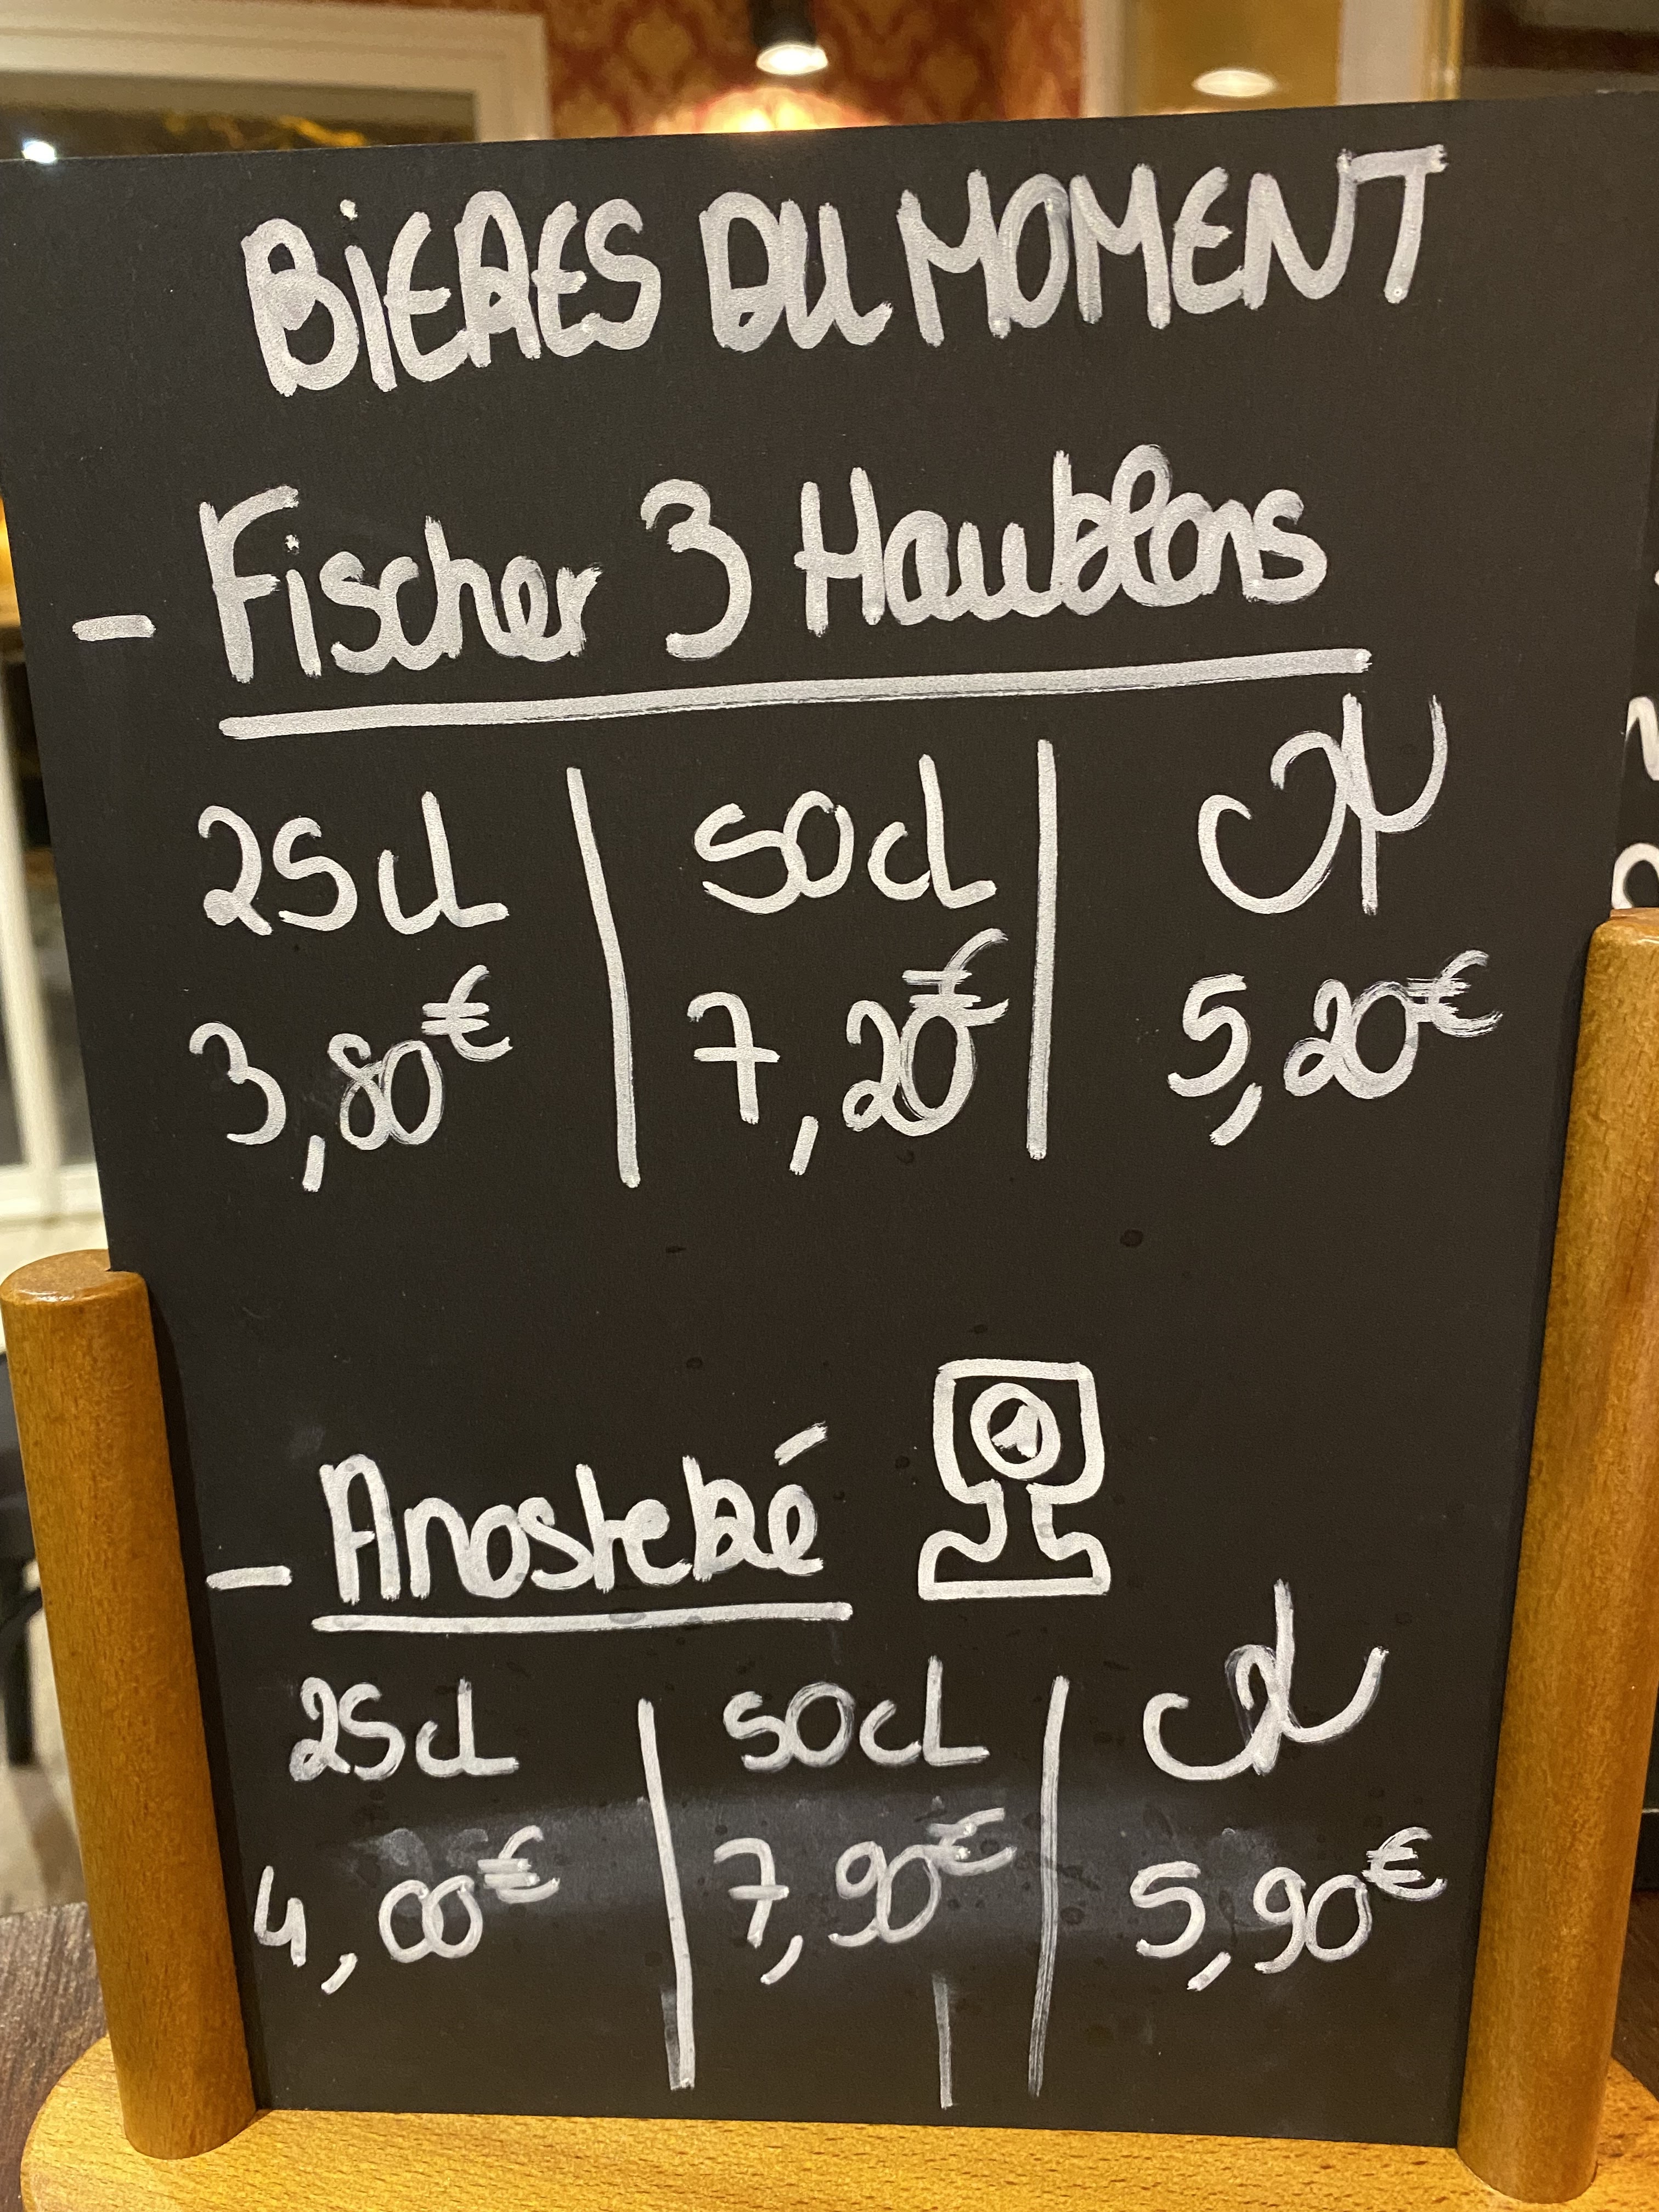 BIERES DU MOMENT
- Fischer 3 Houblons
25cl | 50cl |
3,80€ | 7,20€ | 5,20€
- Anosteké
25cl | 50cl |
4,00€ | 7,90€ | 5,90€